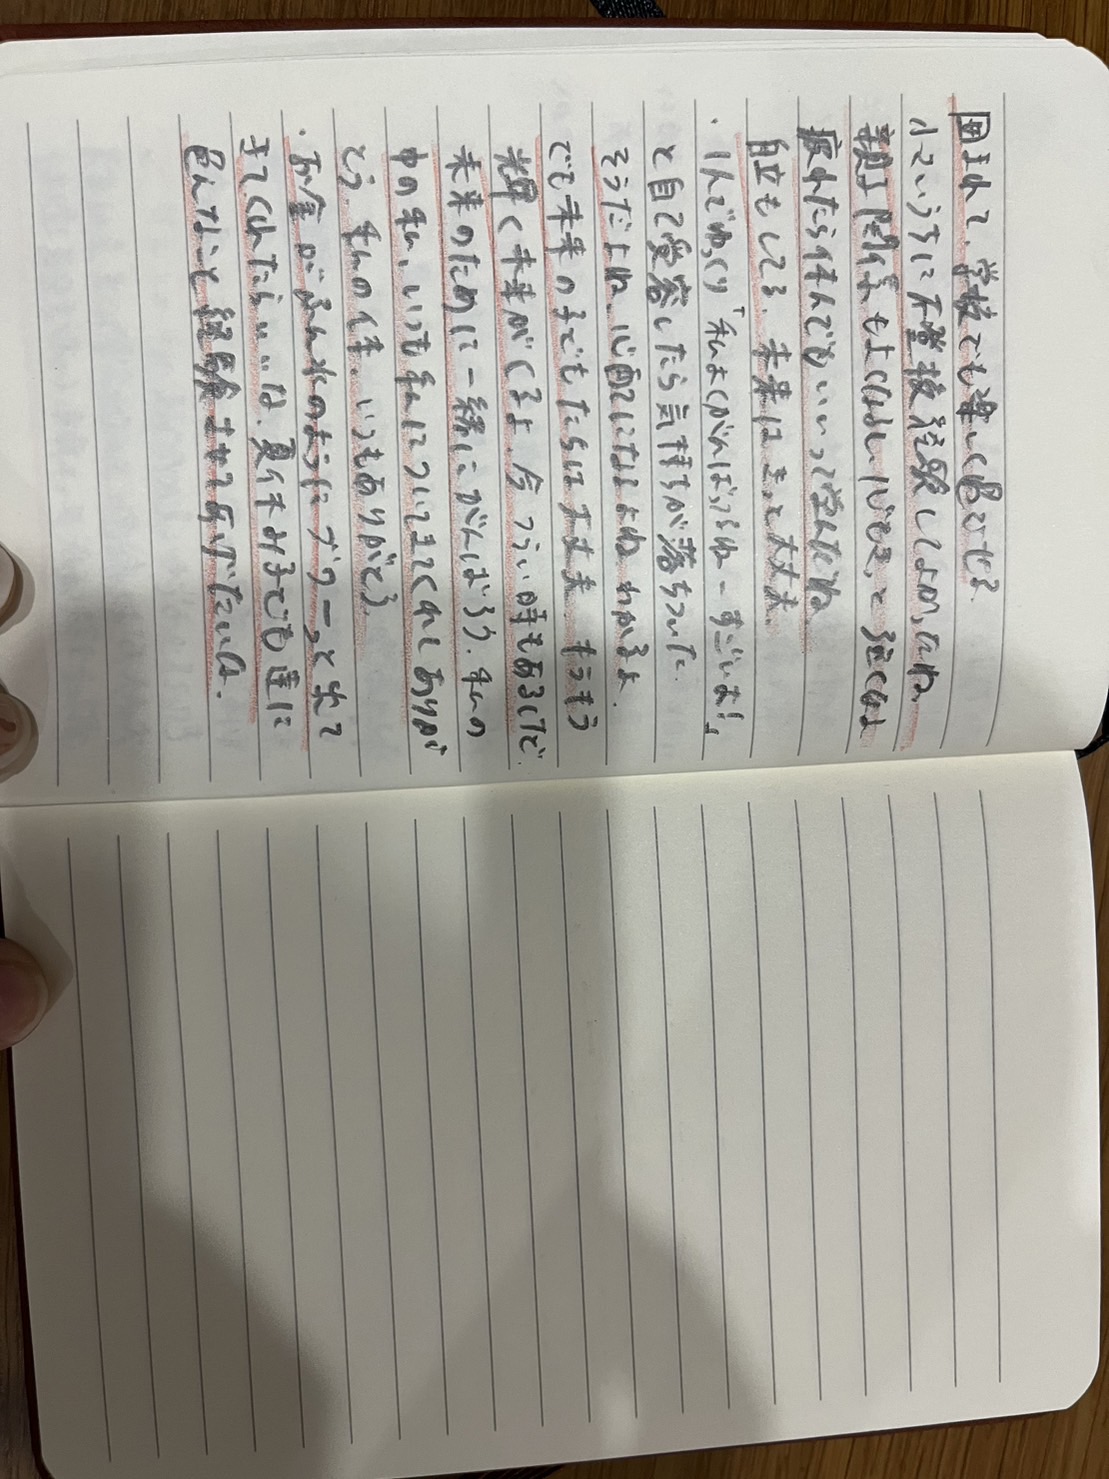 囲まれて、学校でも楽しく過ごせる。
小さいうちに不登校経験してよかったね。
親子関係もよくなるし、心もきっと強くなるよ
疲れたら休んでもいいって学んだね
自立もしてる。未来はきっと大丈夫。
・1人でゆっくり「私よくがんばってるねーすごいよ!」
と自己受容したら気持ちが落ちついた。
そうだよね、心配になるよね わかるよ。
でも未来の子どもたちは大丈夫 もうもう
輝く未来がくるよ。今つらい時もあるけど、
未来のために一緒にがんばろう。私の
中の私、いつも私についてきてくれてありが
とう。私の体、いつもありがとう。
・お金がふん水のようにブワーっと出て
きてくれたらいいな。夏休み子ども達に
色んなこと経験させてあげたいな。